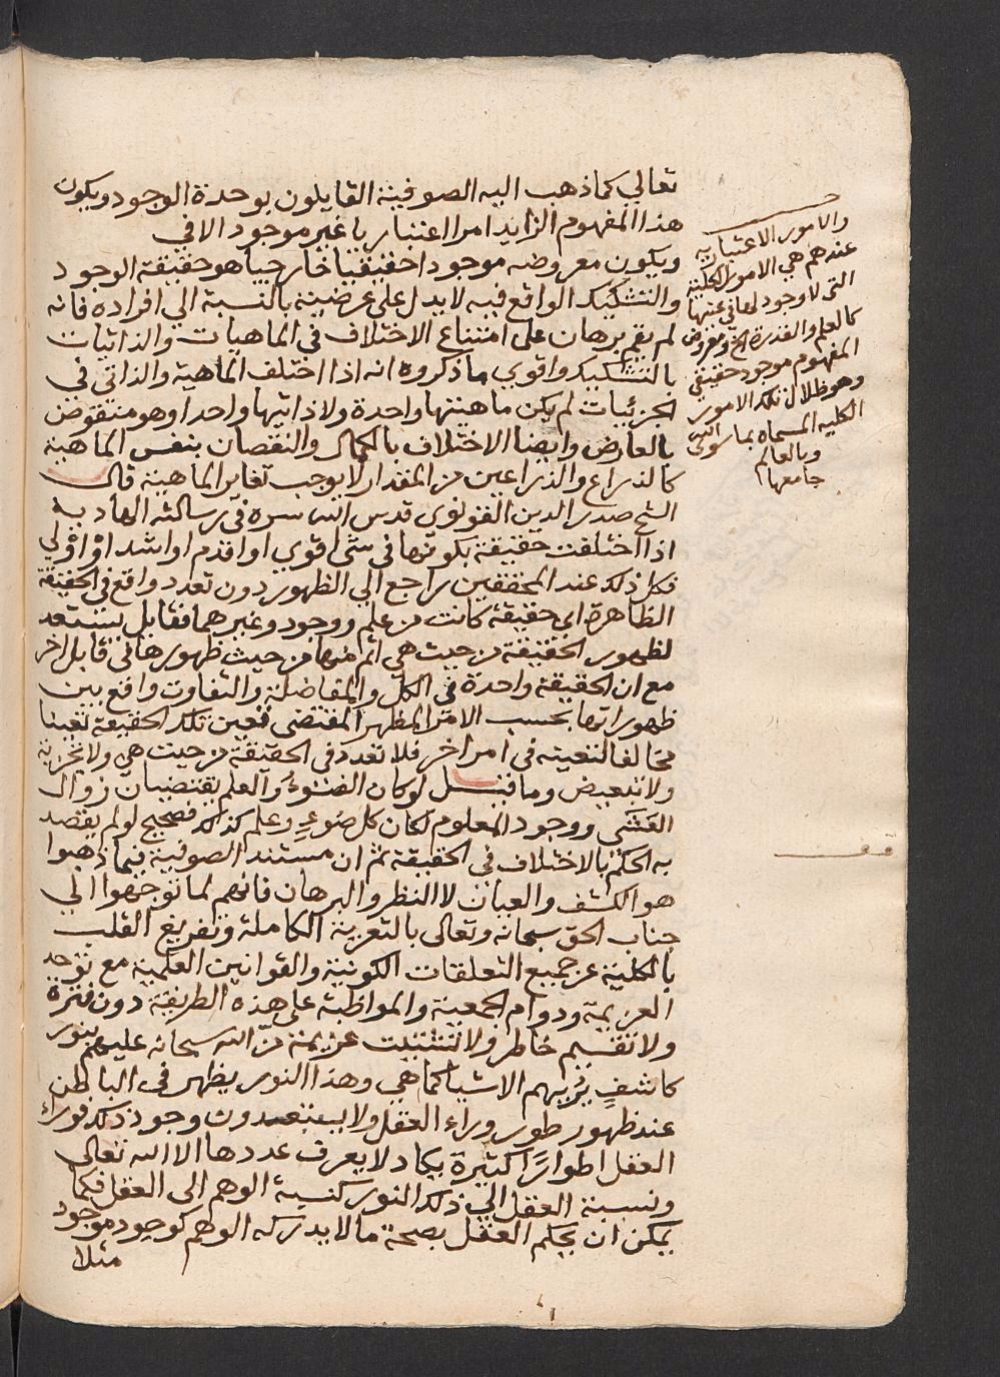 تعالي كما ذهب اليه الصوفية القايلون بوحدة الوجود ويكون
هذا المفهوم الزايد امرا اعتباريا غير موجود الا في
ويكون معروضه موجودا حقيقيا خارجيا هو حقيقة الوجود
والتشكيك الواقع فيه لا يدل على عرضيته بالنسبة الي افراده فانه
لم يقم برهان على امتناع الاختلاف في الماهيات والذاتيات
بالتشكيك واقوي ما ذكروه انه اذا اختلف الماهية والذاتي في
الجزئيات لم يكن ماهيتها واحدة ولا ذاتيها واحدا وهو منقوض
بالعارض وايضا الاختلاف بالكمال والنقصان بنفس الماهية
كالذراع والذراعين من المقدار لا يوجب تغاير الماهية قال
الشيخ صدر الدين القونوي قدس الله سره في رسالته الهادية
اذا اختلفت حقيقة بكونها في شي اقوي او اقدم او اشد او اولي
فكل ذلك عند المحققين راجع الي الظهور دون تعدد واقع في الحقيقة
الظاهرة اي حقيقة كانت من علم ووجود وغيرهما فقابل يستعد
لظهور الحقيقة من حيث هي اتم منها من حيث ظهورها في قابل اخر
مع ان الحقيقة واحدة في الكل والمفاضلة والتفاوت واقع بين
ظهوراتها بحسب الامر المظهر المقتضي فعين تلك الحقيقة تعينا
مخالفا لتعينه في امر اخر فلا تعدد في الحقيقة من حيث هي ولا تجزية
ولا تبعيض وما قيل لو كان الضوء والعلم يقتضيان زوال
العشي ووجود المعلوم لكان كل ضوء وعلم كذلك فصحيح لو لم يقصد
به الحكم بالاختلاف في الحقيقة ثم ان مستند الصوفية فيما ذهبوا
هو الكشف والعيان لا النظر والبرهان فانهم لما توجهوا الي
جناب الحق سبحانه وتعالى بالتعرية الكاملة وتفريغ القلب
بالكلية عن جميع التعلقات الكونية والقوانين العلمية مع توحد
العزيمة ودوام الجمعية والمواظبة على هذه الطريقة دون فترة
ولا تقسيم خاطر ولا تشتيت عزيمة من الله سبحانه عليهم بنور
كاشف يريهم الاشيا كما هي وهذا النور يظهر في الباطن
عند ظهور طور وراء العقل ولا يستبعدون وجود ذلك فوراء
العقل اطوارا كثيرة يكاد لا يعرف عددها الا الله تعالى
ونسبة العقل الي ذلك النور كنسبة الوهم الى العقل فكما
يمكن ان يحكم العقل بصحة ما لا يدركه الوهم كوجود موجود
مثلا
والامور الاعتباريه
عندهم هي الامور الكلية
التي لا وجود لها في عينها
كالعلم والقدرة الخ ومعروض
المفهوم موجود حقيقي
وهو ظلال تلك الامور
الكليه المسماة بما سوى الله
وبالعالم
جامعها